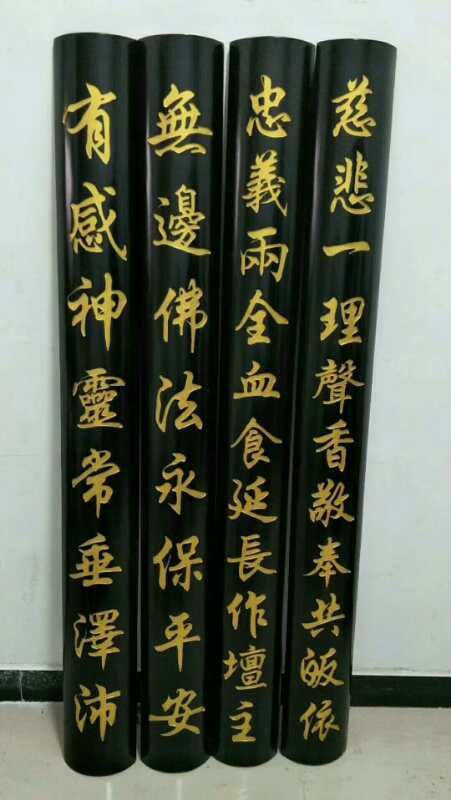 慈悲一理聲香敬奉共皈依
忠義兩全血食延長作壇主
無邊佛法永保平安
有感神靈常垂澤沛